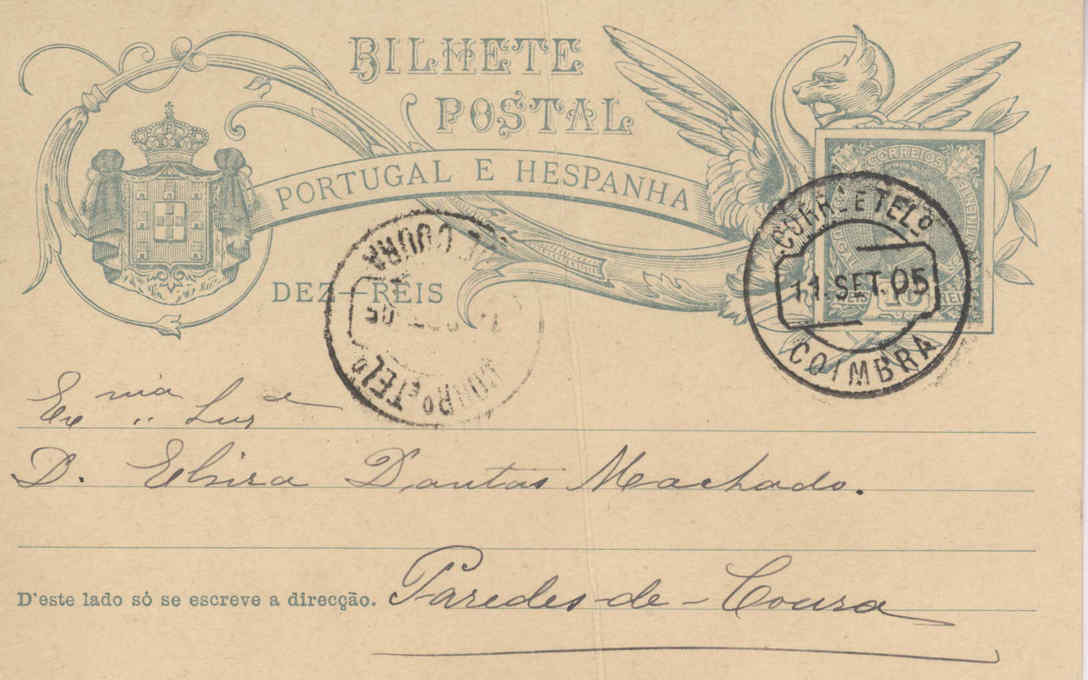 BILHETE
POSTAL
PORTUGAL E HESPANHA
DEZ-REIS
CORREIOS
10 REIS
CORR. E TELº
11. SET. 05
COIMBRA
E COURA
05
CORRº E TELº
Exma Snra
D. Elvira Dantas Machado.
D'este lado só se escreve a direcção.
Paredes-de-Coura